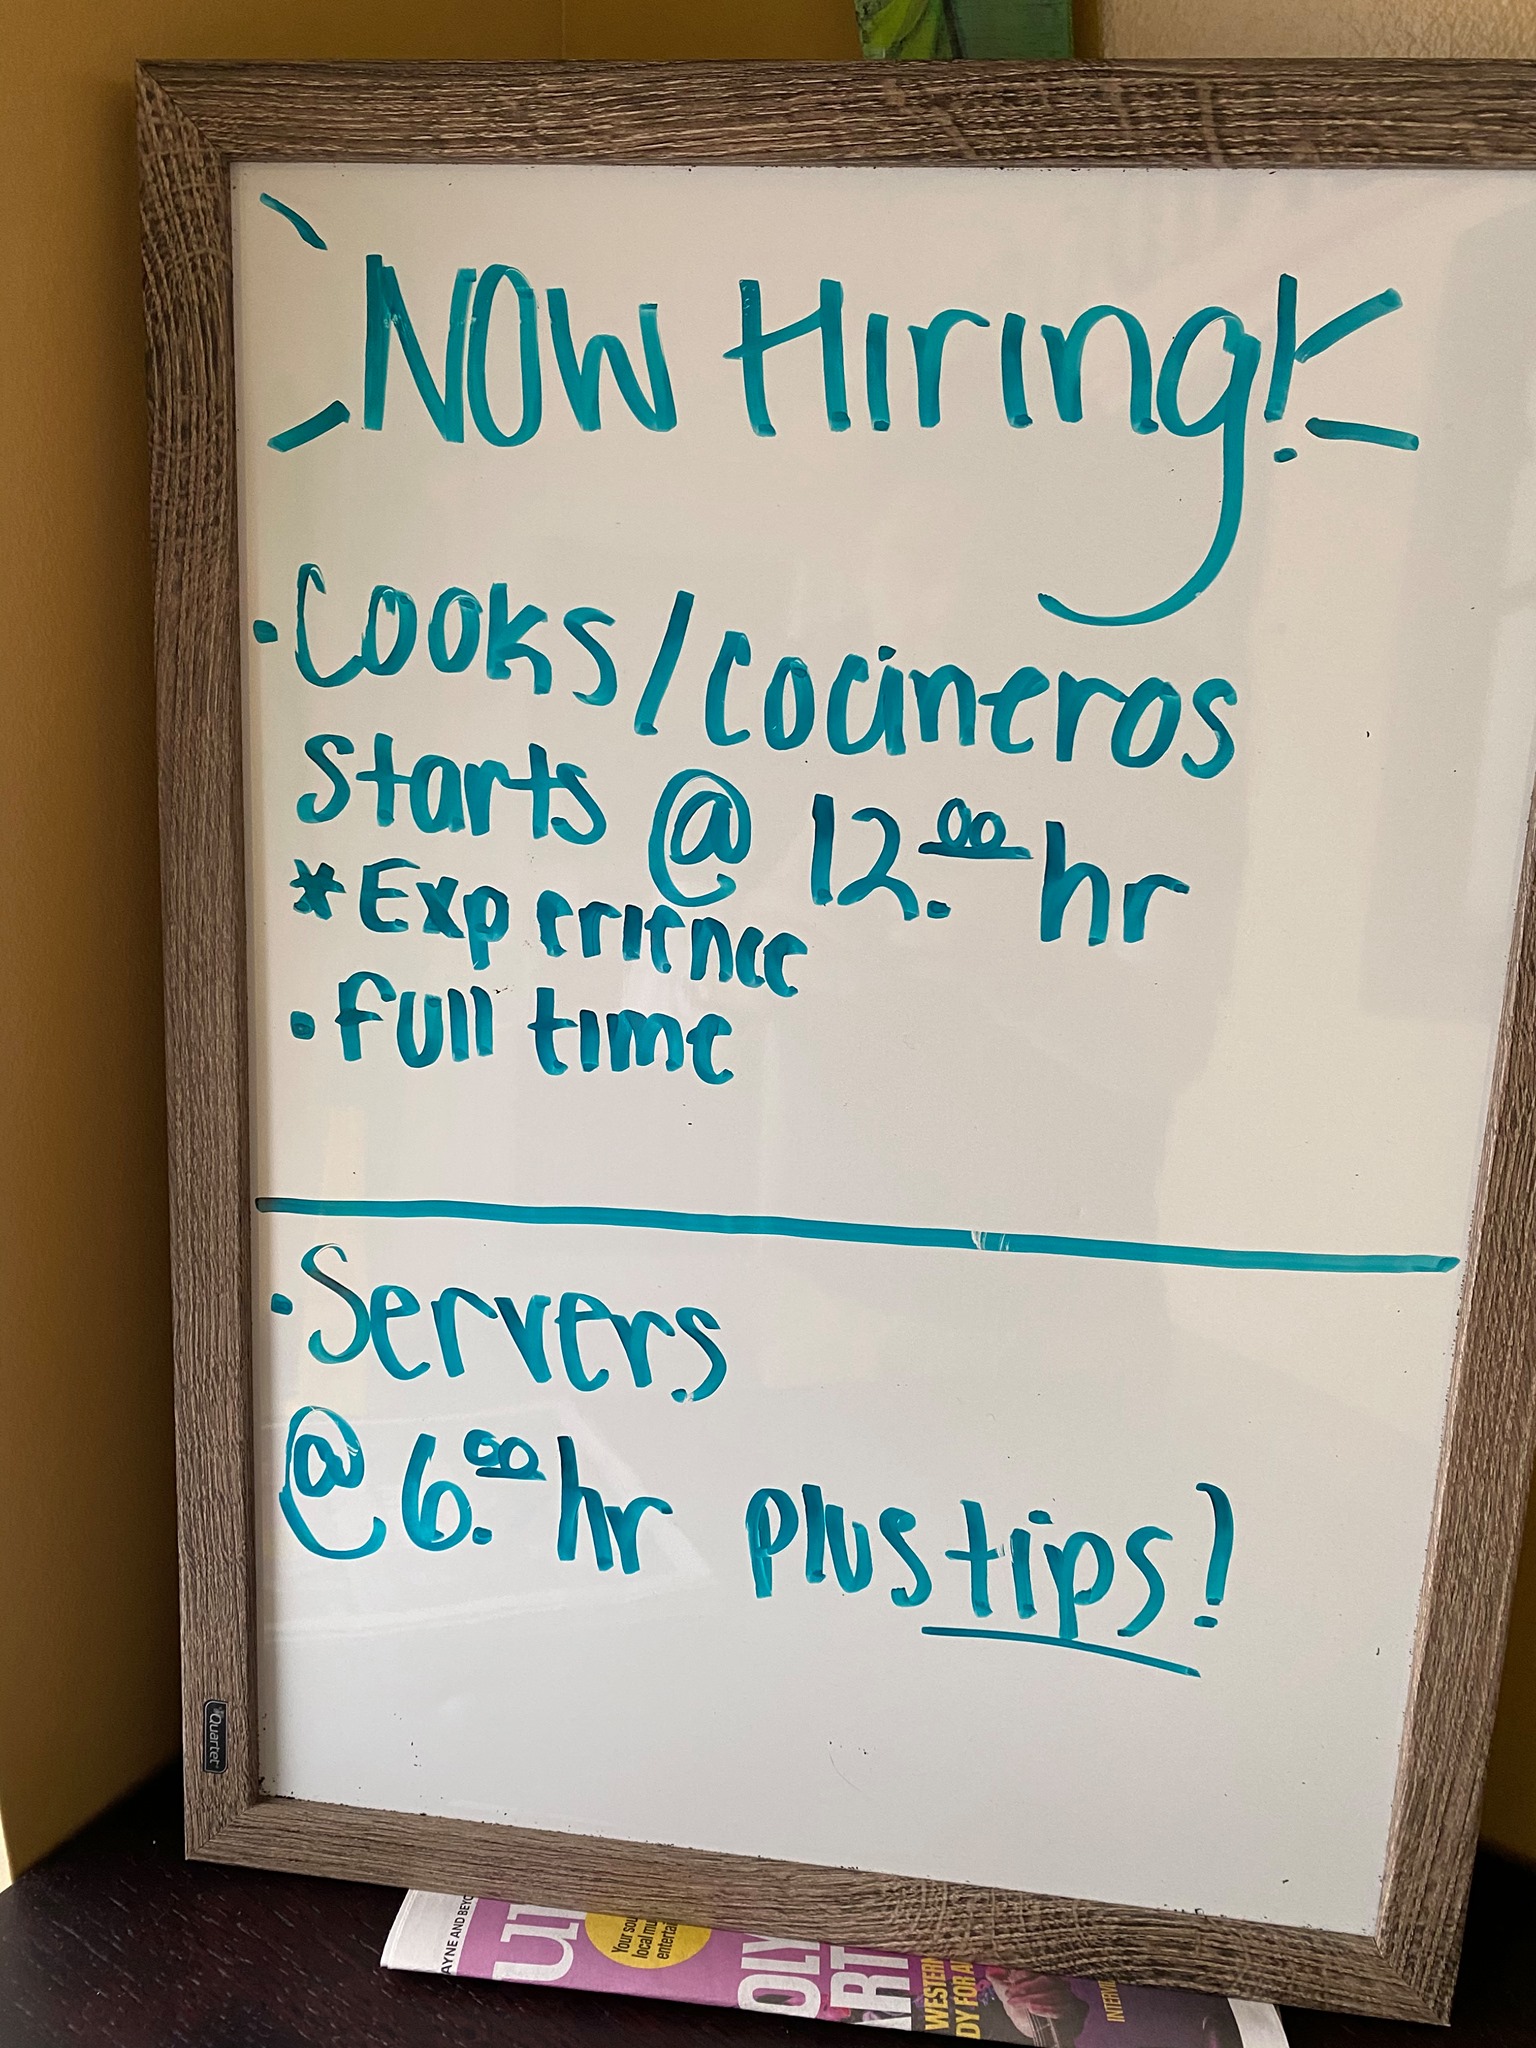 Now Hiring!
• Cooks/Cocineros
Starts @ 12.00 hr
* Experience
• full time
• Servers
@ 6.00 hr plus tips!
Quartet
AYNE AND BEYO
Your sou
local mu
entertai
OLY
ART
WESTERN
DY FOR A
INTERVI